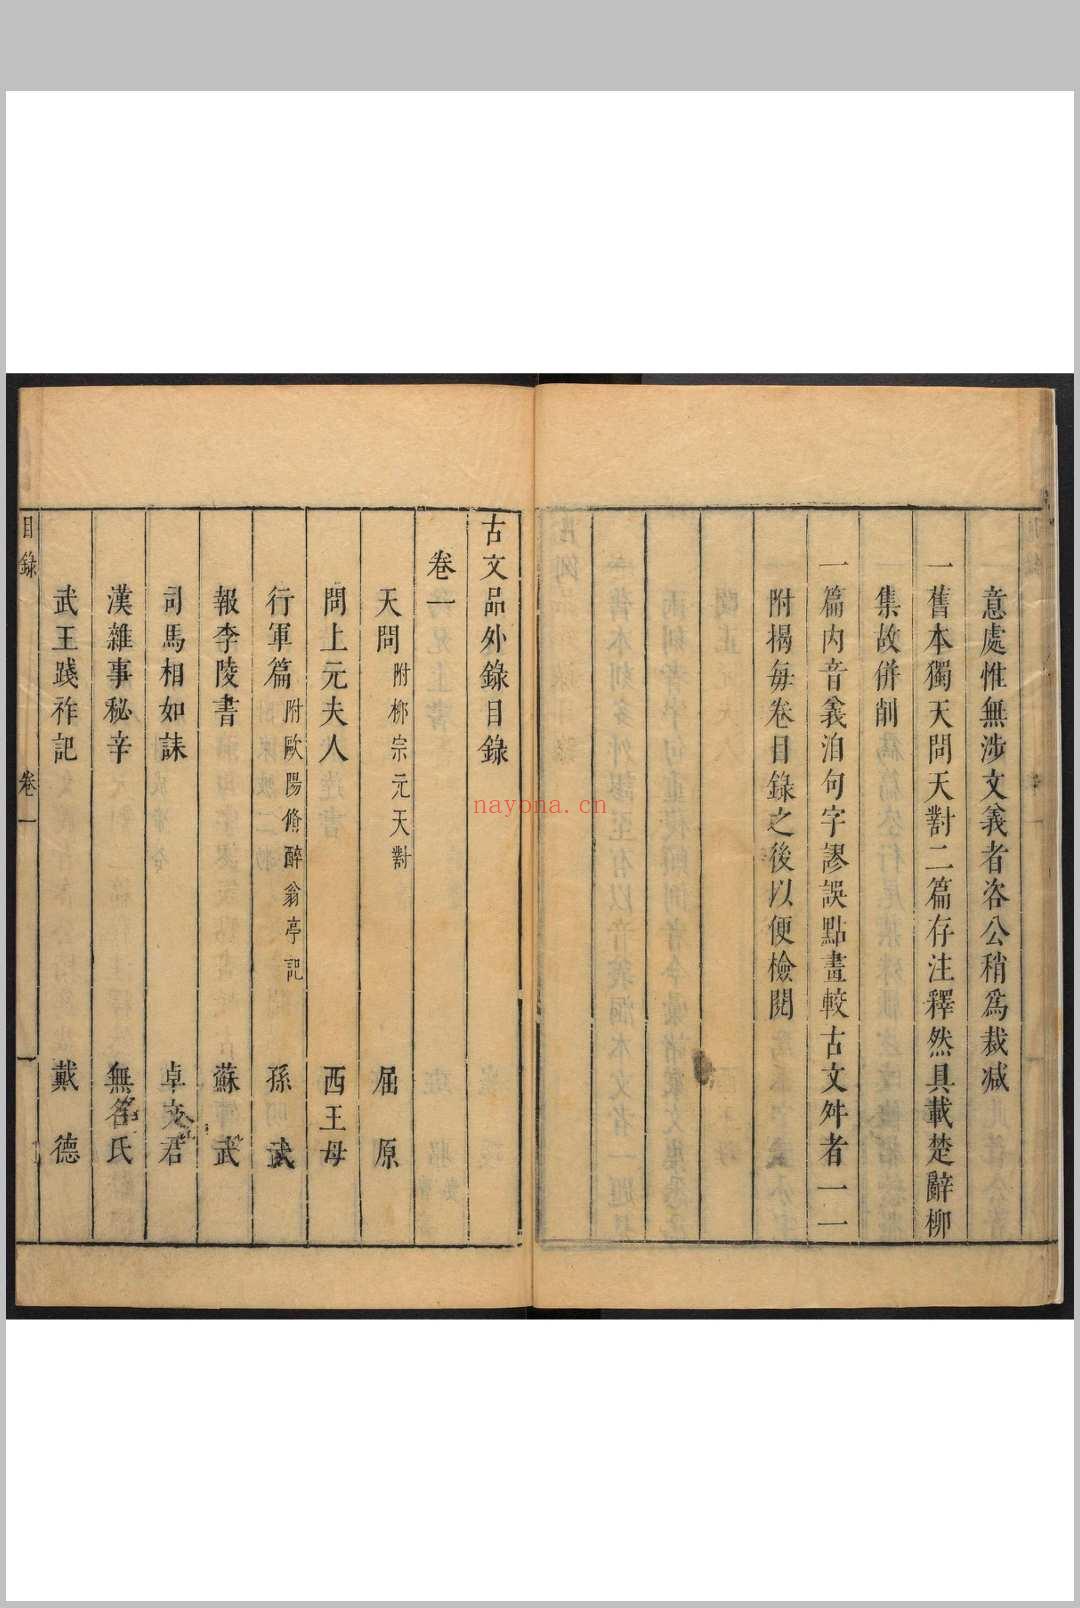 意處惟無涉文義者咨公稍爲裁減
一舊本獨天問天對二篇存注釋然具載楚辭柳
集故併削
一篇內音義洎句字謬誤點畫較古文舛者一一
附揭每卷目錄之後以便檢閱
古文品外錄目錄
卷一
天問 附柳宗元天對 屈原
問上元夫人 西王母
行軍篇 附歐陽脩醉翁亭記 孫武
報李陵書 蘇武
司馬相如誄 卓文君
漢雜事秘辛 無名氏
武王踐祚記 戴德
目錄 卷一 一
nayona.cn